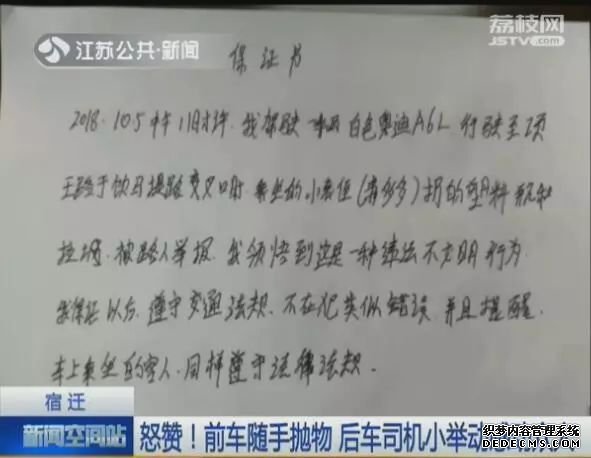 江苏公共·新闻
荔枝网
JSTV.com
保证书
2018.10.5中午11时许.我驾驶一辆白色奥迪A6L.行驶至项
王路于饮马提路交叉口时 乘坐的小老侄(）扔的塑料瓶和
垃圾.被路人举报.我领悟到这是一种违法不文明行为.
我保证以后.遵守交通法规.不在犯类似错误.并且提醒.
车上乘坐的客人.同样遵守法律法规.
宿迁
新闻空间站
怒赞！前车随手抛物 后车司机小举动